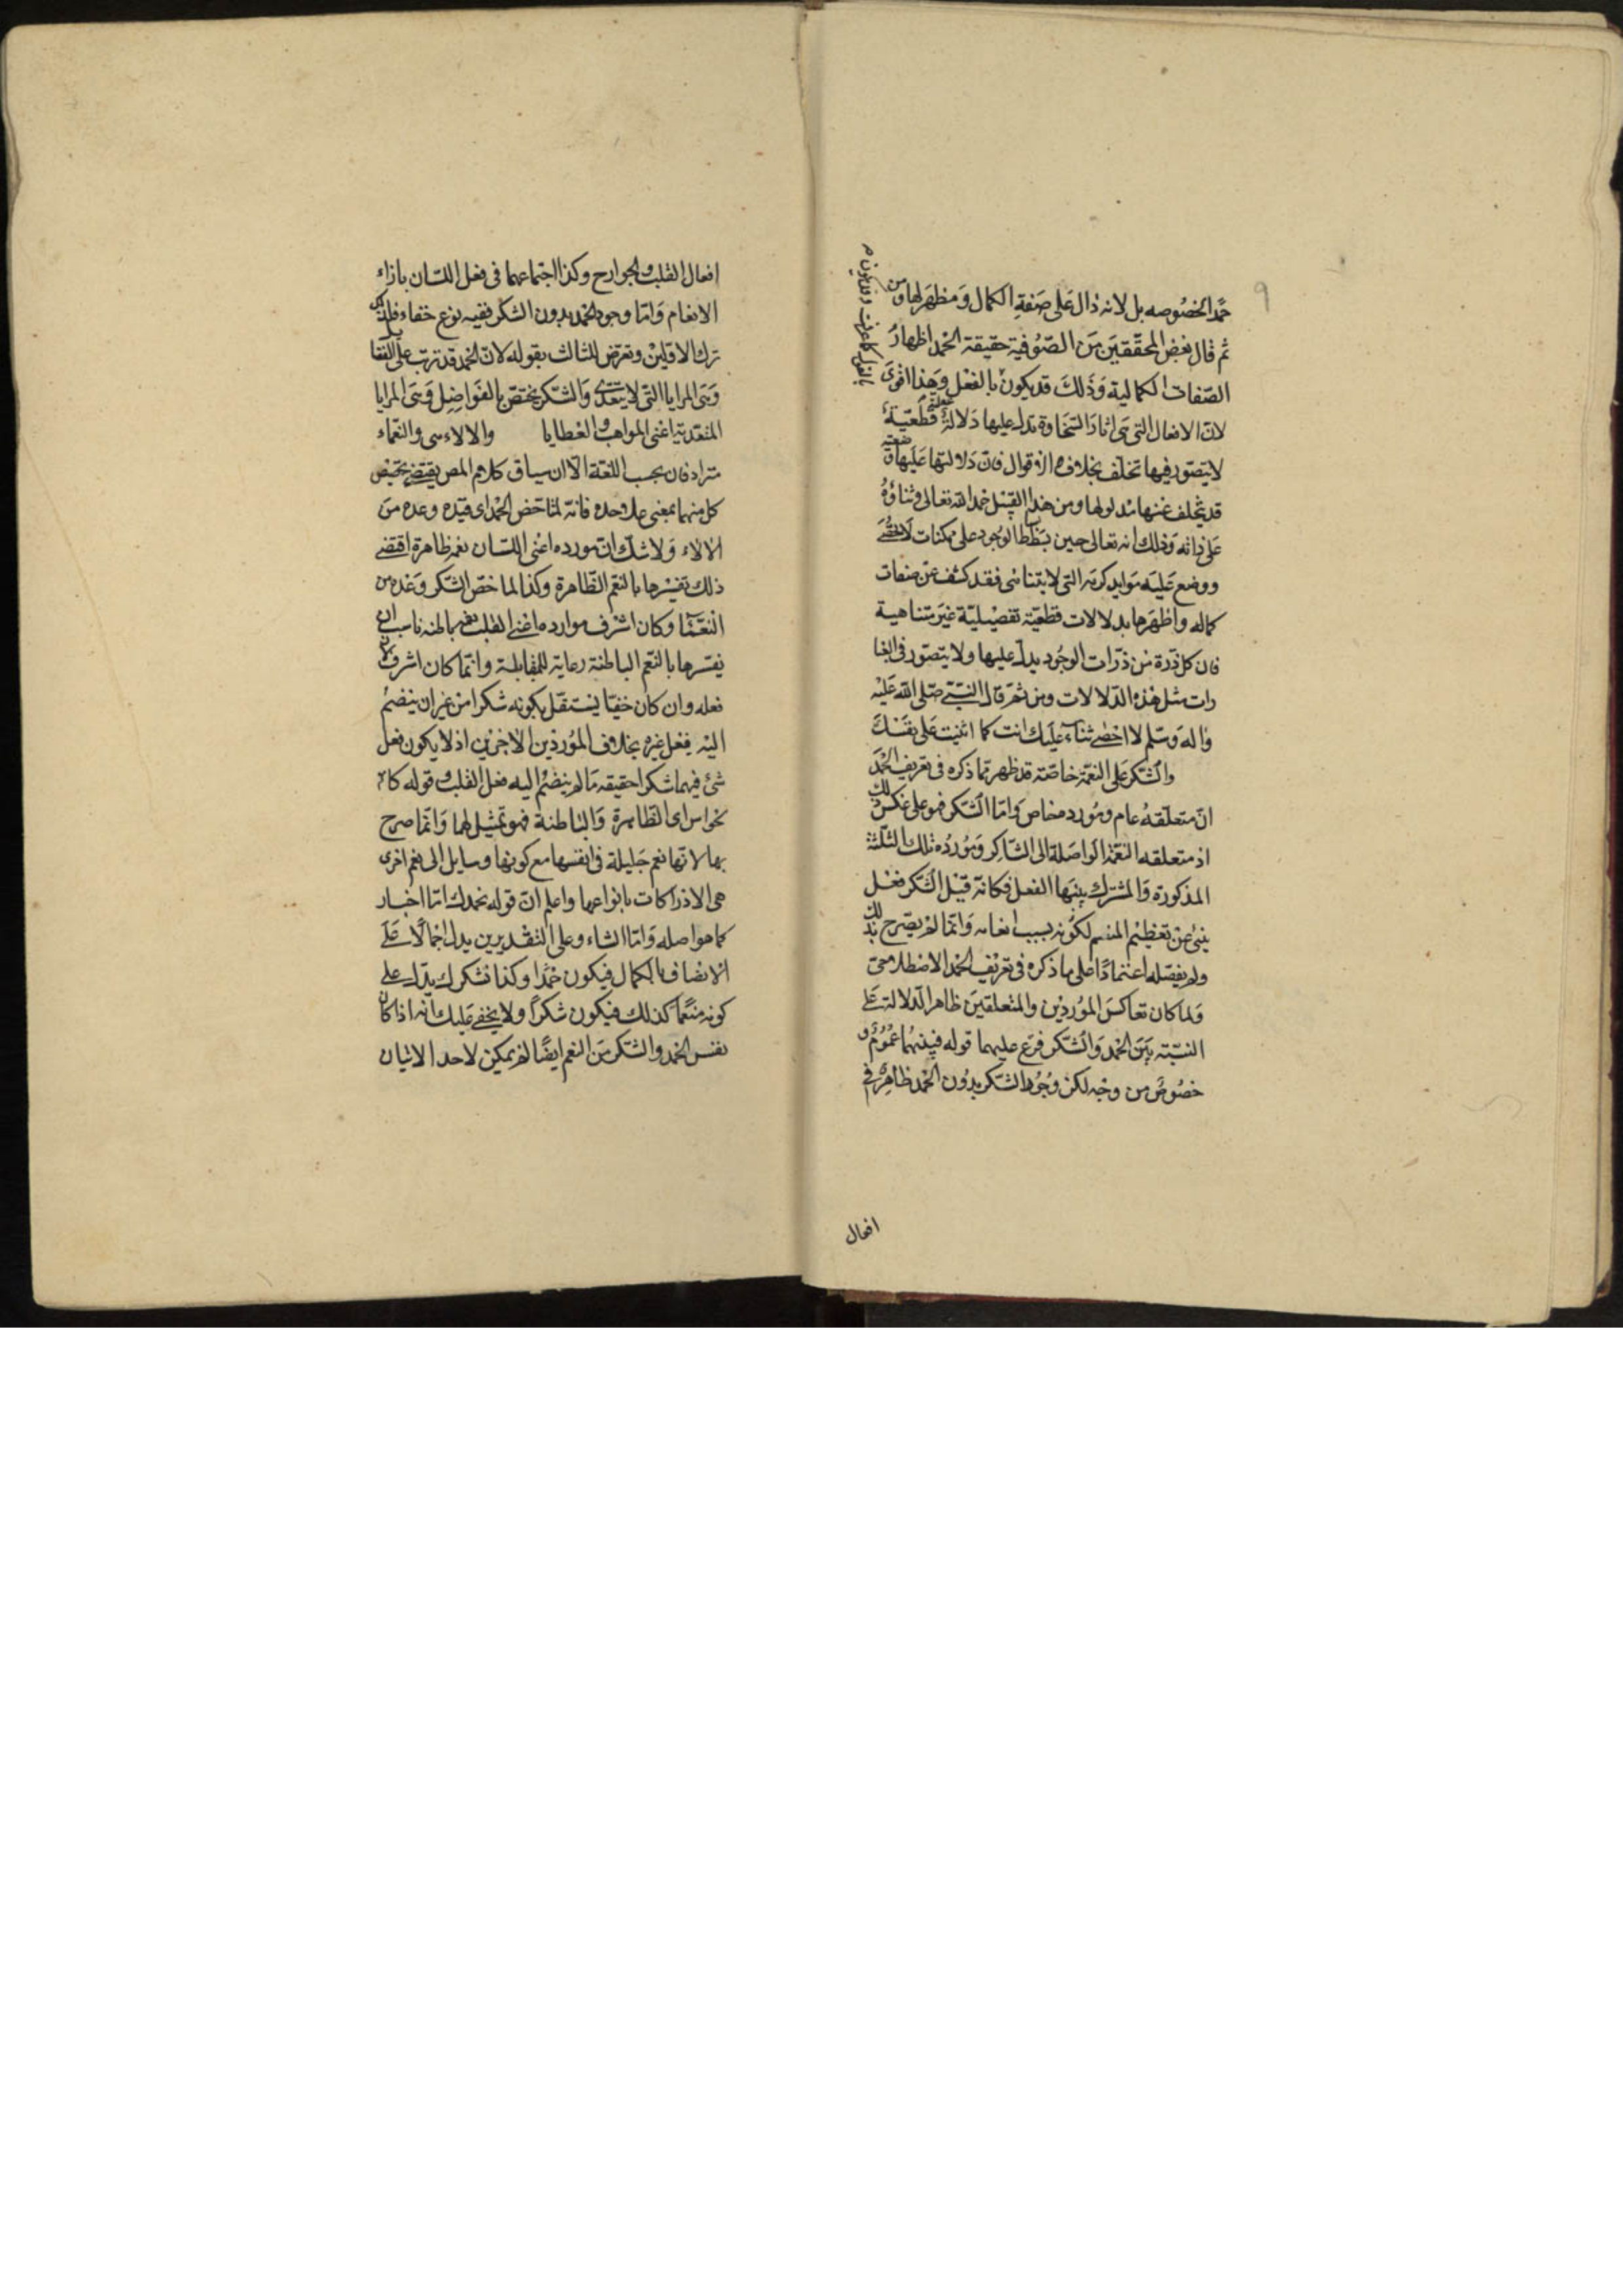 حمدا لخصوصه بل لانه دال على صفة الكمال ومظهر لها ومن
ثم قال بعض المحققين من الصوفية حقيقة الحمد اظهار
الصفات الكمالية وذلك قد يكون بالفعل وهذا اقوى
بالقول كما عرفت وقد يكون م
لان الافعال التي هي اثار السخاوة تدل عليها دلالة عقلية قطعية
لا يتصور فيها تخلف بخلاف الاقوال فان دلالتها عليها وضعية
قد يتخلف عنها مدلولها ومن هذا القبيل حمد الله تعالى وثناؤه
على ذاته وذلك انه تعالى حين بسط بساط الوجود على ممكنات لا تحصى
ووضع عليه موايد كرمه التي لا يتناهى فقد كشف عن صفات
كماله واظهرها بدلالات قطعية تفصيلية غير متناهية
فان كل ذرة من ذرات الوجود يدل عليها ولا يتصور في العبا
رات مثل هذه الدلالات ومن ثم قال النبي صلى الله عليه
واله وسلم لا احصى ثناء عليك انت كما اثنيت على نفسك
والشكر على النعمة خاصة قد ظهر مما ذكره في تعريف الحمد
ان متعلقه عام ومورده خاص واما الشكر فهو على عكس ذلك
اذ متعلقه النعمة الواصلة الى الشاكر ومورده تلك الثلثة
المذكورة والمشترك بينها الفعل فكانه قيل الشكر فعل
ينبئ عن تعظيم المنعم لكونه بسبب انعامه وانما لم يصرح بذلك
ولم يفصله اعتمادا على ما ذكره في تعريف الحمد الاصطلاحى
ولما كان تعاكس الموردين والمتعلقين ظاهر الدلالة على
النسبة بين الحمد والشكر فرع عليهما قوله فبينهما عموم و
خصوص من وجه لكن وجود الشكر بدون الحمد ظاهر في
افعال
افعال القلب والجوارح وكذا اجتماعهما في فعل اللسان بازاء
الانعام واما وجود الحمد بدون الشكر ففيه نوع خفاء فلذلك
ترك الاولين وتعرض للثالث بقوله لان الحمد قد ترتب على الفضايل
وهي المزايا التي لا يتعدى والشكر يختص بالفواضل وهي المزايا
المتعدية اعنى المواهب والعطايا والالاء سى والنعماء
مترادفان بحسب اللغة الا ان سياق كلام المص يقتضي تخصيص
كل منهما بمعنى على حده فانه لما خص الحمد اى قيده وعده من
الالاء ولا شك ان مورده اعنى اللسان نعمة ظاهرة اقتضى
ذلك تفسيرها بالنعم الظاهرة وكذا لما خص الشكر وعده من
النعماء وكان اشرف موارده اعنى القلب نعمة باطنه ناسب ان
يفسرها بالنعم الباطنة رعاية للمقابلة وانما كان اشرف لان
فعله وان كان خفيا يستقل بكونه شكرا من غير ان ينضم
اليه فعل غيره بخلاف الموردين الاخرين اذ لا يكون فعل
شئ فيهما شكرا حقيقة ما لم ينضم اليه فعل القلب وقوله كا
لحواس اى الظاهرة والباطنة فهو تمثيل لهما وانما صرح
بها لانها نعم جليلة في انفسها مع كونها وسايل الى نعم اخرى
هى الادراكات بانواعها واعلم ان قوله نحمدك اما اخبار
كما هو اصله واما انشاء وعلى التقديرين يدل اجمالا على
الاتصاف بالكمال فيكون حمدا وكذا نشكرك يدل على
كونه منعما كذلك فيكون شكرا ولا يخفى عليك انه اذا كان
نفس الحمد والشكر من النعم ايضا لم يمكن لاحد الاتيان